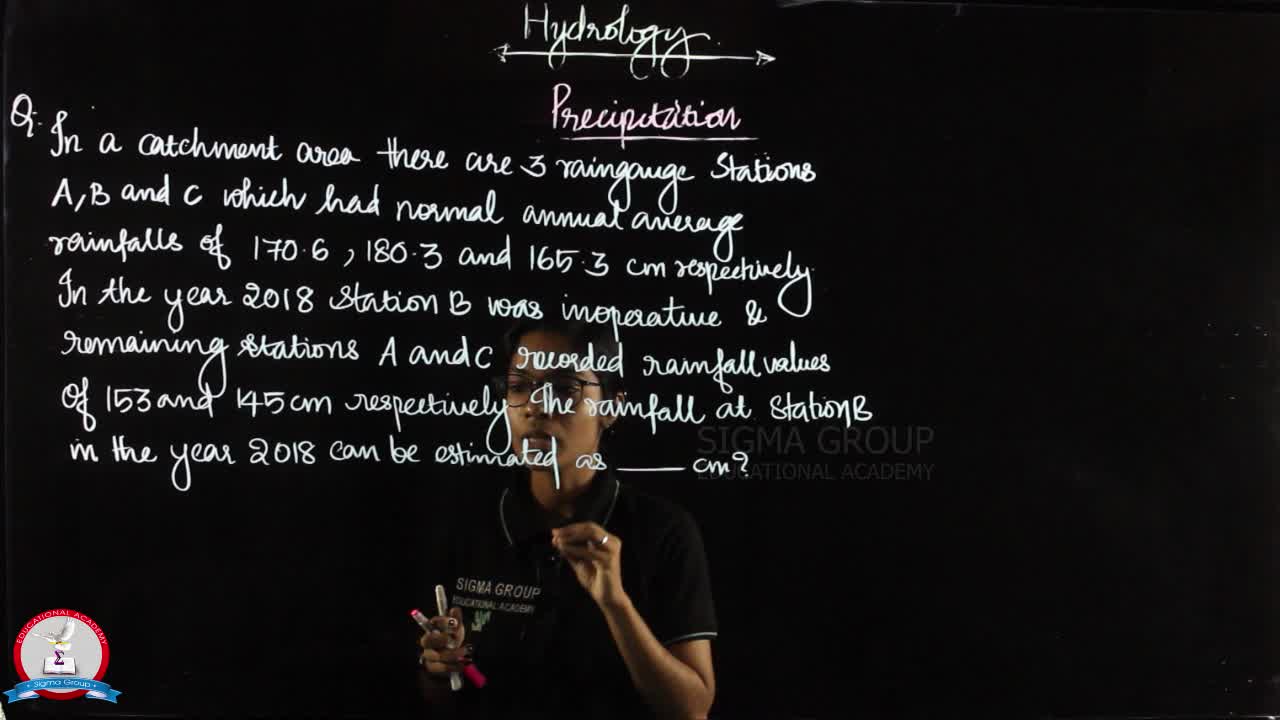 Hydrology
Precipitation
Q: In a catchment area there are 3 raingauge stations
A, B and C which had normal annual average
rainfalls of 170.6, 180.3 and 165.3 cm respectively.
In the year 2018 Station B was inoperative &
remaining stations A and C recorded rainfall values
of 153 and 145 cm respectively. The rainfall at Station B
in the year 2018 can be estimated as ____ cm?
SIGMA GROUP
EDUCATIONAL ACADEMY
SIGMA GROUP
EDUCATIONAL ACADEMY
EDUCATIONAL ACADEMY
Σ
Sigma Group